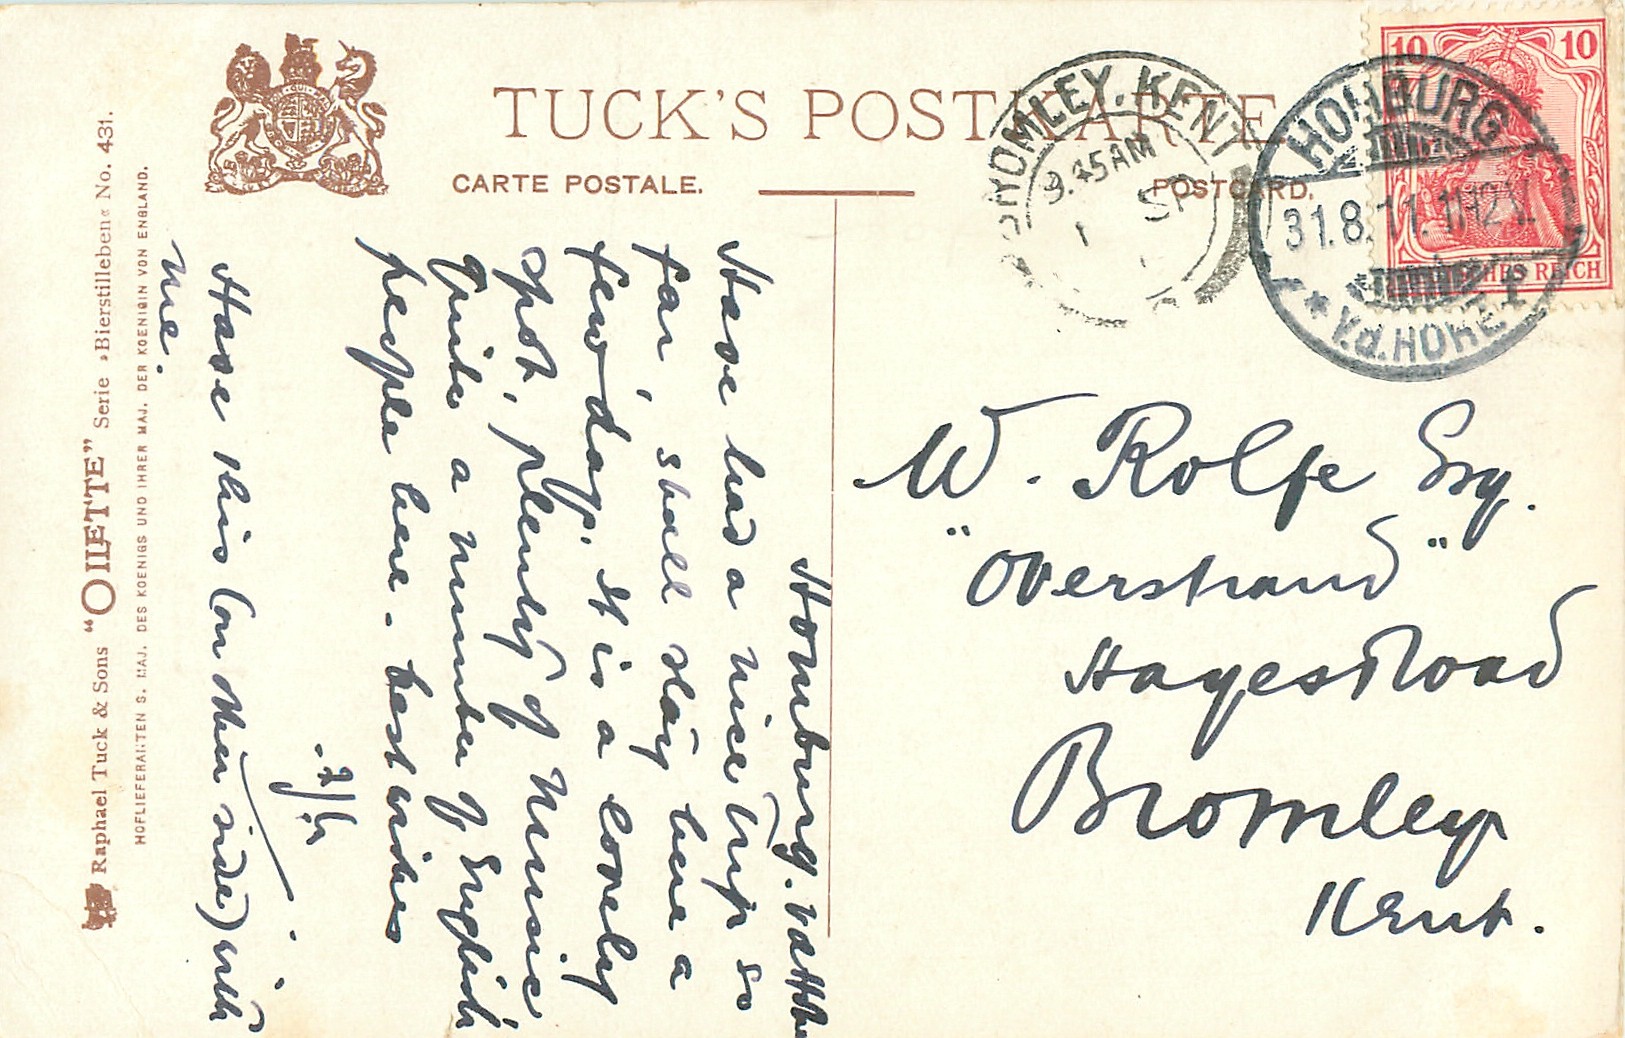 TUCK'S POSTKARTE.
CARTE POSTALE.
POSTCARD.
BROMLEY. KENT
9.45AM
1 SP
HOMBURG
31.8.11.11-12V.
* v.d.HÖHE 1
10 10
DEUTSCHES REICH
Homburg.
Have had a nice trip so
far, shall stay here a
few days. It is a lovely
spot, plenty of music
quite a number of English
people here. best wishes
Have this (on other side) with
me.
W. Rolfe Esq.
"Overstrand"
Hayes Road
Bromley
Kent.
Raphael Tuck & Sons "OILETTE" Serie »Bierstilleben« No. 431.
HOFLIEFERANTEN S. MAJ. DES KOENIGS UND IHRER MAJ. DER KOENIGIN VON ENGLAND.